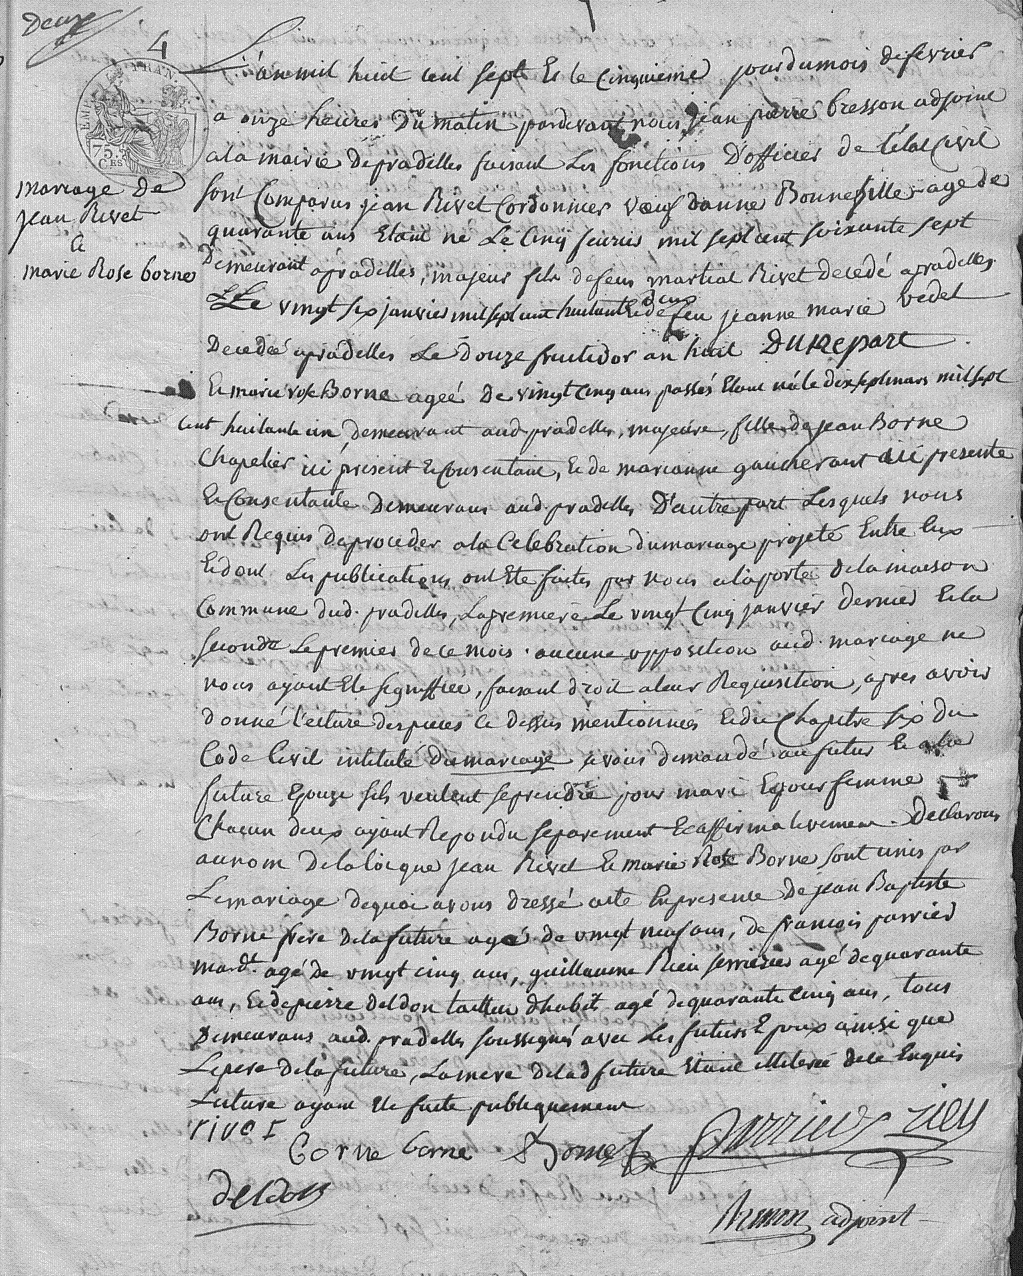 Deux
4
EMP. FRAN.
75 CES
mariage de
jean Rivet
&
marie Rose borne
L'an mil huit cent sept Et le Cinquieme jour du mois defevrier
a onze heures Du matin pardevant nous jean pierre bresson adjoint
a la mairie depradelles faisant Les fonctions D'officier de l'état Civil
sont Comparus jean Rivet Cordonnier veuf danne Bonnefille agé de
quarante ans Etant né Le Cinq fevrier mil sept cent soixante sept
Demeurant apradelles, majeur fils defeu martial Rivet decedé apradelles
Le vingt six janvier mil sept cent huitante deux Et de feu jeanne marie vedel
Decedée apradelles Le Douze fruitidor an huit D'une part
Et marie rose Borne agée De vingt Cinq ans passés Etant née le dix sept mars mil sept
cent huitante un, demeurant aud. pradelles, majeure, fille de jean Borne
Chapelier ici present Et Consentant, Et de marianne gaucherant ici presente
Et Consentante Demeurans aud. pradelles D'autre part Lesquels nous
ont Requis De proceder a la Celebration du mariage projeté Entre Eux
Et dont Les publications ont Eté faites par nous a la porte de la maison
Commune dud. pradelles, La premiere Le vingt Cinq janvier dernier Et la
seconde Le premier de ce mois. aucune opposition aud. mariage ne
nous ayant Eté signiffiée, faisant droit a leur Requisition, après avoir
donné Lecture des pieces Ci dessus mentionnées Et du Chapitre six du
Code Civil intitulé du mariage avons demandé au futur Et a la
future Epouse s'ils veulent se prendre pour mari Et pour femme
Chacun deux ayant Repondu separement Et affirmativement Declarons
au nom De la loi que jean Rivet Et marie Rose Borne sont unis par
Le mariage de quoi avons dressé acte En presence De jean Baptiste
Borne frere de la future agé de vingt neuf ans, de françois parrier
mard. agé de vingt cinq ans, guillaume Rieu serrurier agé de quarante
ans, Et de pierre deldon tailleur d'habit, agé de quarante cinq ans, tous
Demeurans aud. pradelles soussignés avec Les futurs Epoux ainsi que
Le pere de la future, La mere de lad. future Etant illiterée de ce Enquis
Lecture ayant Eté faite publiquement
rivet
borne borne Borne parrier rieu
deldon
Bresson adjoint